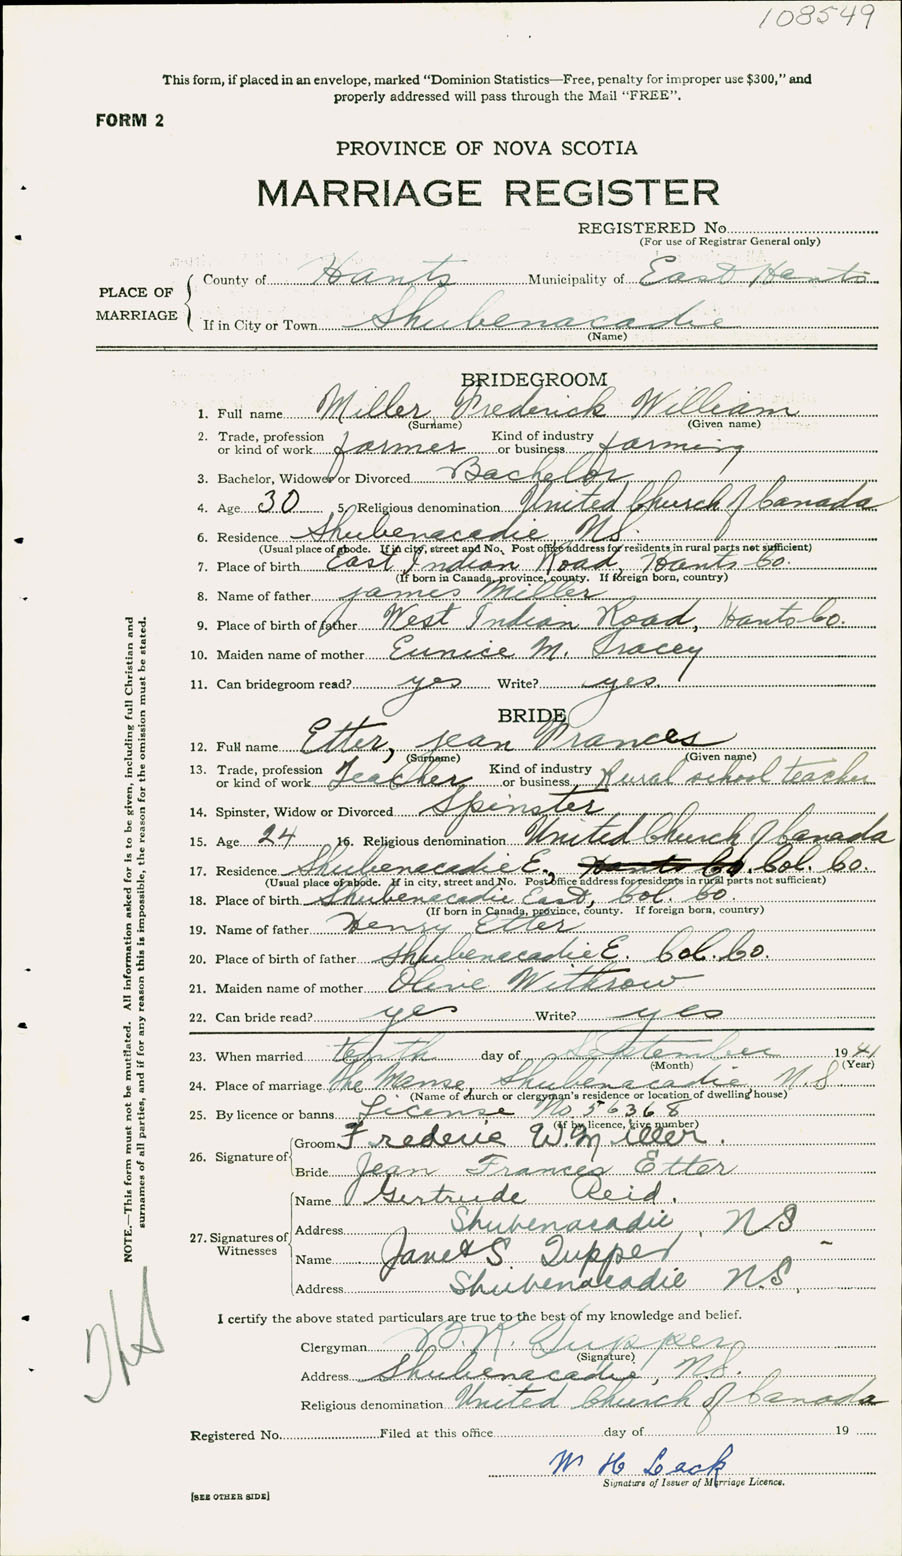 108549
This form, if placed in an envelope, marked “Dominion Statistics—Free, penalty for improper use $300,” and
properly addressed will pass through the Mail “FREE”.
FORM 2
PROVINCE OF NOVA SCOTIA
MARRIAGE REGISTER
REGISTERED No.
(For use of Registrar General only)
PLACE OF MARRIAGE
County of Hants Municipality of East Hants
If in City or Town Shubenacadie
(Name)
BRIDEGROOM
1. Full name Miller Frederick William
(Surname) (Given name)
2. Trade, profession or kind of work farmer Kind of industry or business farming
3. Bachelor, Widower or Divorced Bachelor
4. Age 30 5. Religious denomination United Church of Canada
6. Residence Shubenacadie N.S.
(Usual place of abode. If in city, street and No. Post office address for residents in rural parts not sufficient)
7. Place of birth East Indian Road, Hants Co.
(If born in Canada, province, county. If foreign born, country)
8. Name of father James Miller
9. Place of birth of father West Indian Road, Hants Co.
10. Maiden name of mother Eunice M. Tracey
11. Can bridegroom read? yes Write? yes
BRIDE
12. Full name Etter, Jean Frances
(Surname) (Given name)
13. Trade, profession or kind of work Teacher Kind of industry or business Rural school teacher
14. Spinster, Widow or Divorced Spinster
15. Age 24 16. Religious denomination United Church of Canada
17. Residence Shubenacadie E., Hants Co. Col. Co.
(Usual place of abode. If in city, street and No. Post office address for residents in rural parts not sufficient)
18. Place of birth Shubenacadie East, Col. Co.
(If born in Canada, province, county. If foreign born, country)
19. Name of father Henry Etter
20. Place of birth of father Shubenacadie E. Col. Co.
21. Maiden name of mother Olive Withrow
22. Can bride read? yes Write? yes
23. When married tenth day of September 1941
(Month) (Year)
24. Place of marriage The Manse, Shubenacadie N.S
(Name of church or clergyman's residence or location of dwelling house)
25. By licence or banns License No 56368
(If by licence, give number)
26. Signature of Groom Frederic W. Miller.
Bride Jean Frances Etter
27. Signatures of Witnesses
Name Gertrude Reid.
Address Shubenacadie, NS
Name Janet S. Tupper
Address Shubenacadie N.S.
I certify the above stated particulars are true to the best of my knowledge and belief.
Clergyman Tupper
(Signature)
Address Shubenacadie, N.S.
Religious denomination United Church of Canada
Registered No. Filed at this office day of 19
W H Leck
Signature of Issuer of Marriage Licence.
[SEE OTHER SIDE]
NOTE.—This form must not be mutilated. All information asked for is to be given, including full Christian and
surnames of all parties, and if for any reason this is impossible, the reason for the omission must be stated.